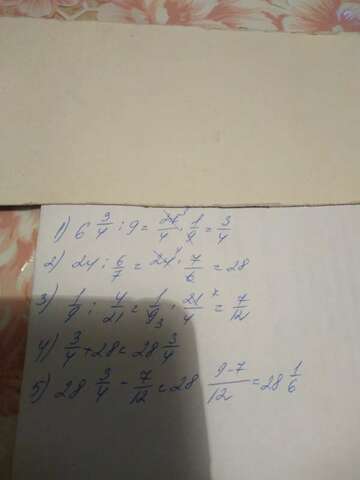 1) 6 3/4 : 9 = 27/4 · 1/9 = 3/4
2) 24 : 6/7 = 24 · 7/6 = 28
3) 1/9 : 4/21 = 1/9 · 21/4 = 7/12
4) 3/4 + 28 = 28 3/4
5) 28 3/4 - 7/12 = 28 9-7/12 = 28 1/6